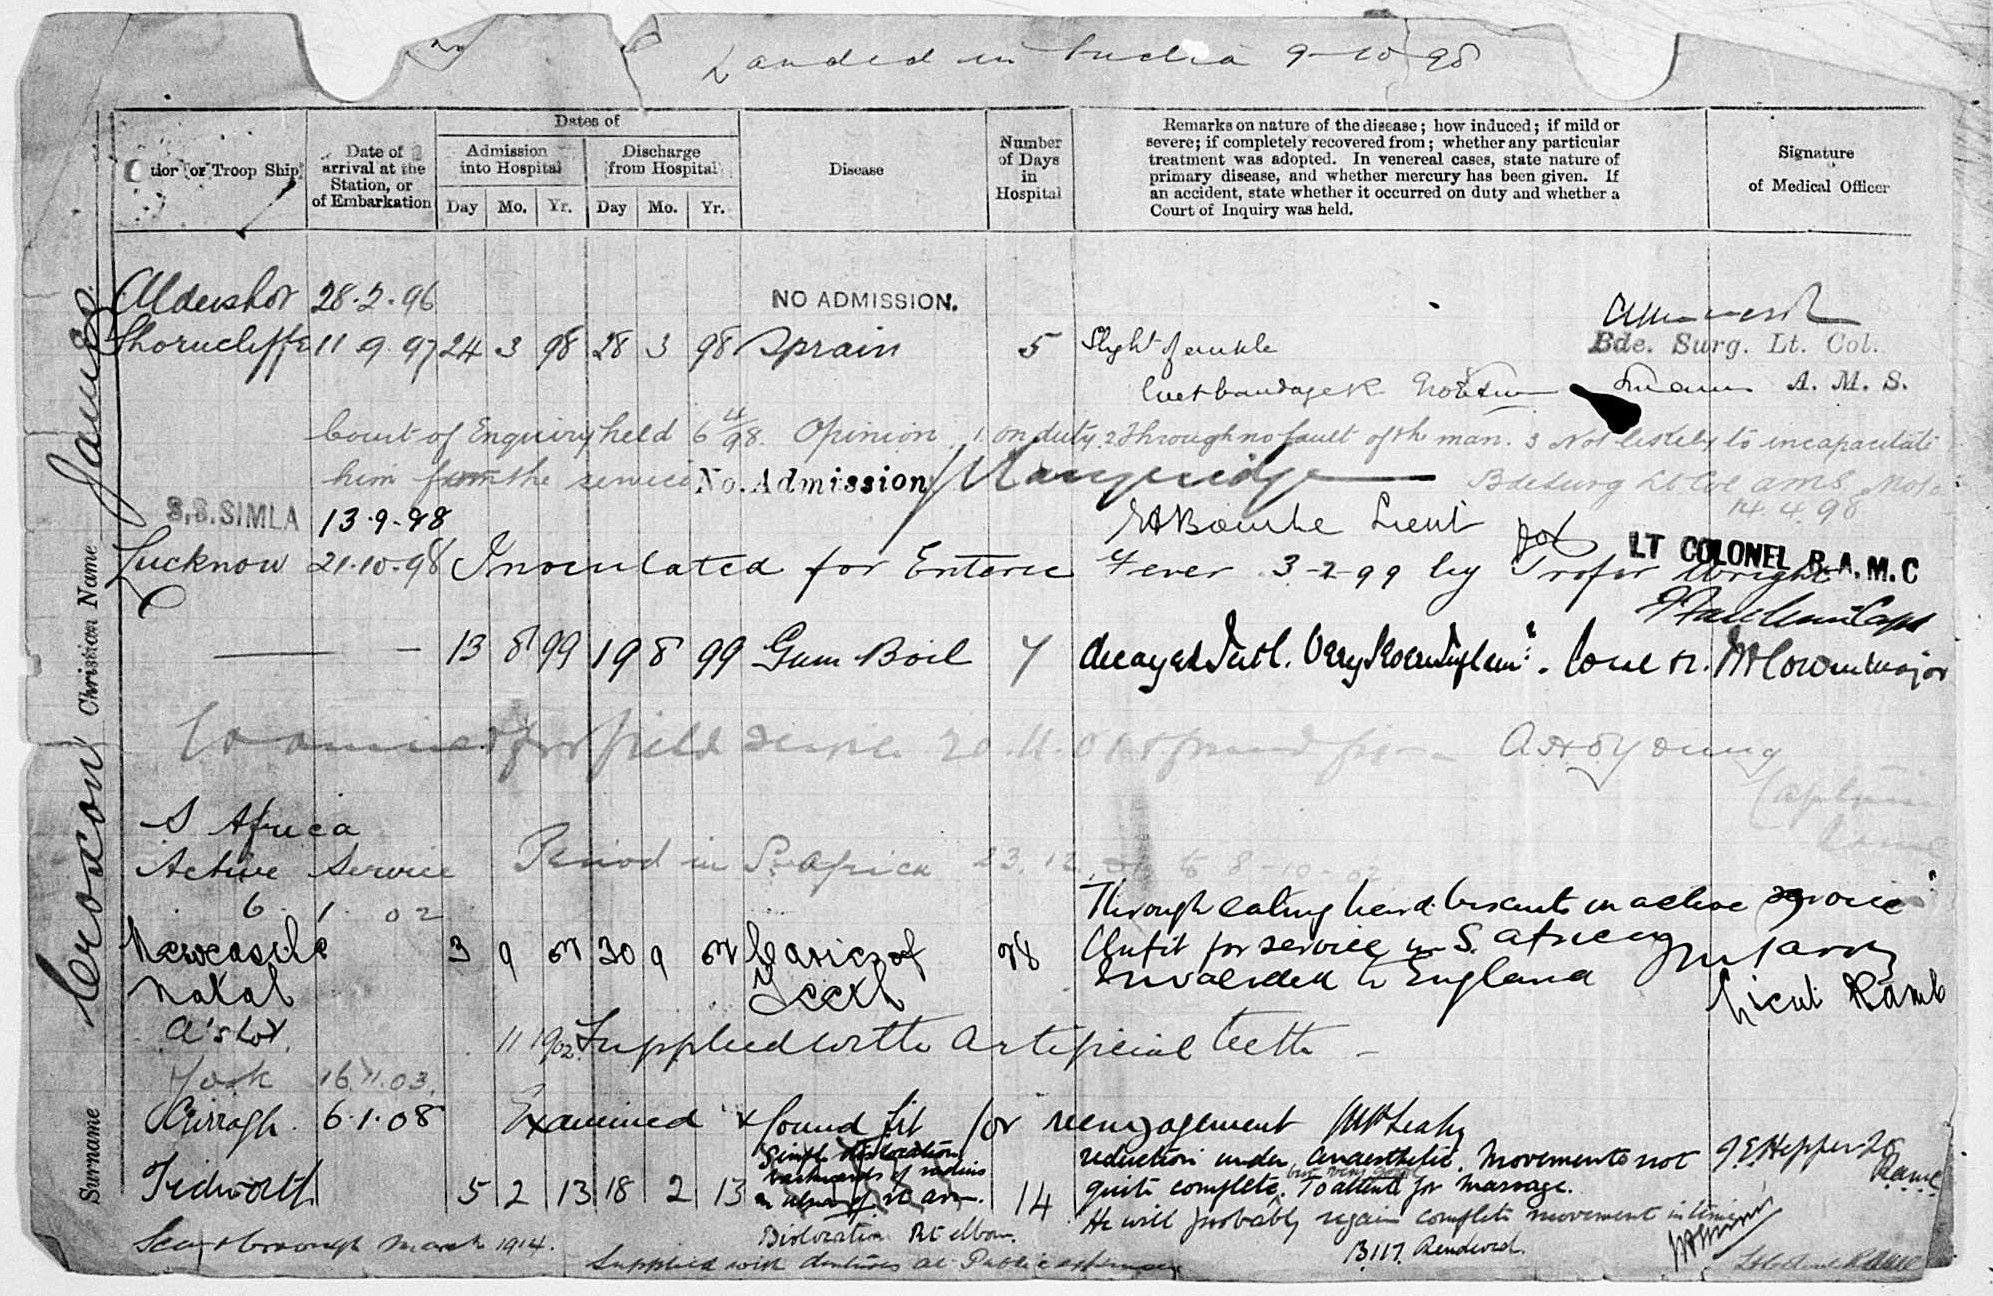 Landed in India 9-10-98
Dates of
Station or Troop Ship
Date of arrival at the Station, or of Embarkation
Admission into Hospital
Discharge from Hospital
Disease
Number of Days in Hospital
Remarks on nature of the disease; how induced; if mild or
severe; if completely recovered from; whether any particular
treatment was adopted. In venereal cases, state nature of
primary disease, and whether mercury has been given. If
an accident, state whether it occurred on duty and whether a
Court of Inquiry was held.
Signature
of Medical Officer
Day Mo. Yr. Day Mo. Yr.
Surname Croxon Christian Name James
Aldershot 28.2.96 NO ADMISSION.
Shorncliffe 11 9 97 24 3 98 28 3 98 Sprain 5 Slight of ankle Bde. Surg. Lt. Col.
Wet bandage A. M. S.
Court of Enquiry held 6 4/98. Opinion 1. on duty. 2 Through no fault of the man. 3 Not likely to incapacitate
him from the service No. Admission Bde Surg Lt Col AMS
14.4.98
S.S. SIMLA 13.9.98 Bourke Lieut
LT COLONEL R.A.M.C
Lucknow 21.10.98 Inoculated for Enteric Fever 3-2-99 by Profsr Wright
Capt
13 8 99 19 8 99 Gum Boil 7 decayed Teeth. Major
Examined for field service 20.11.01 & found fit A. H. O. Young
Captain
S Africa
Active Service Period in S. Africa 23.12.01 to 8-10-02
6 1 02 Through eating hard biscuits on active service
Newcastle 3 9 02 30 9 02 Caries of 28 Unfit for service in S. Africa
Natal Teeth Invalided to England Lieut RAMC
A'shot 11 1902 Supplied with Artificial teeth
York 16.11.03.
Curragh. 6.1.08 Examined & found fit for reengagement
Simple dislocation
backwards of radius
& ulna of rt arm.
Tidworth 5 2 13 18 2 13 14 reduction under Anaesthetic. Movements not
quite complete, but very good. To attend for massage.
J E Hepper Lt
RAMC
He will probably regain complete movement in time
Dislocation Rt elbow.
B117. Rendered.
Scarborough March 1914.
Supplied with dentures at Public expense
RAMC